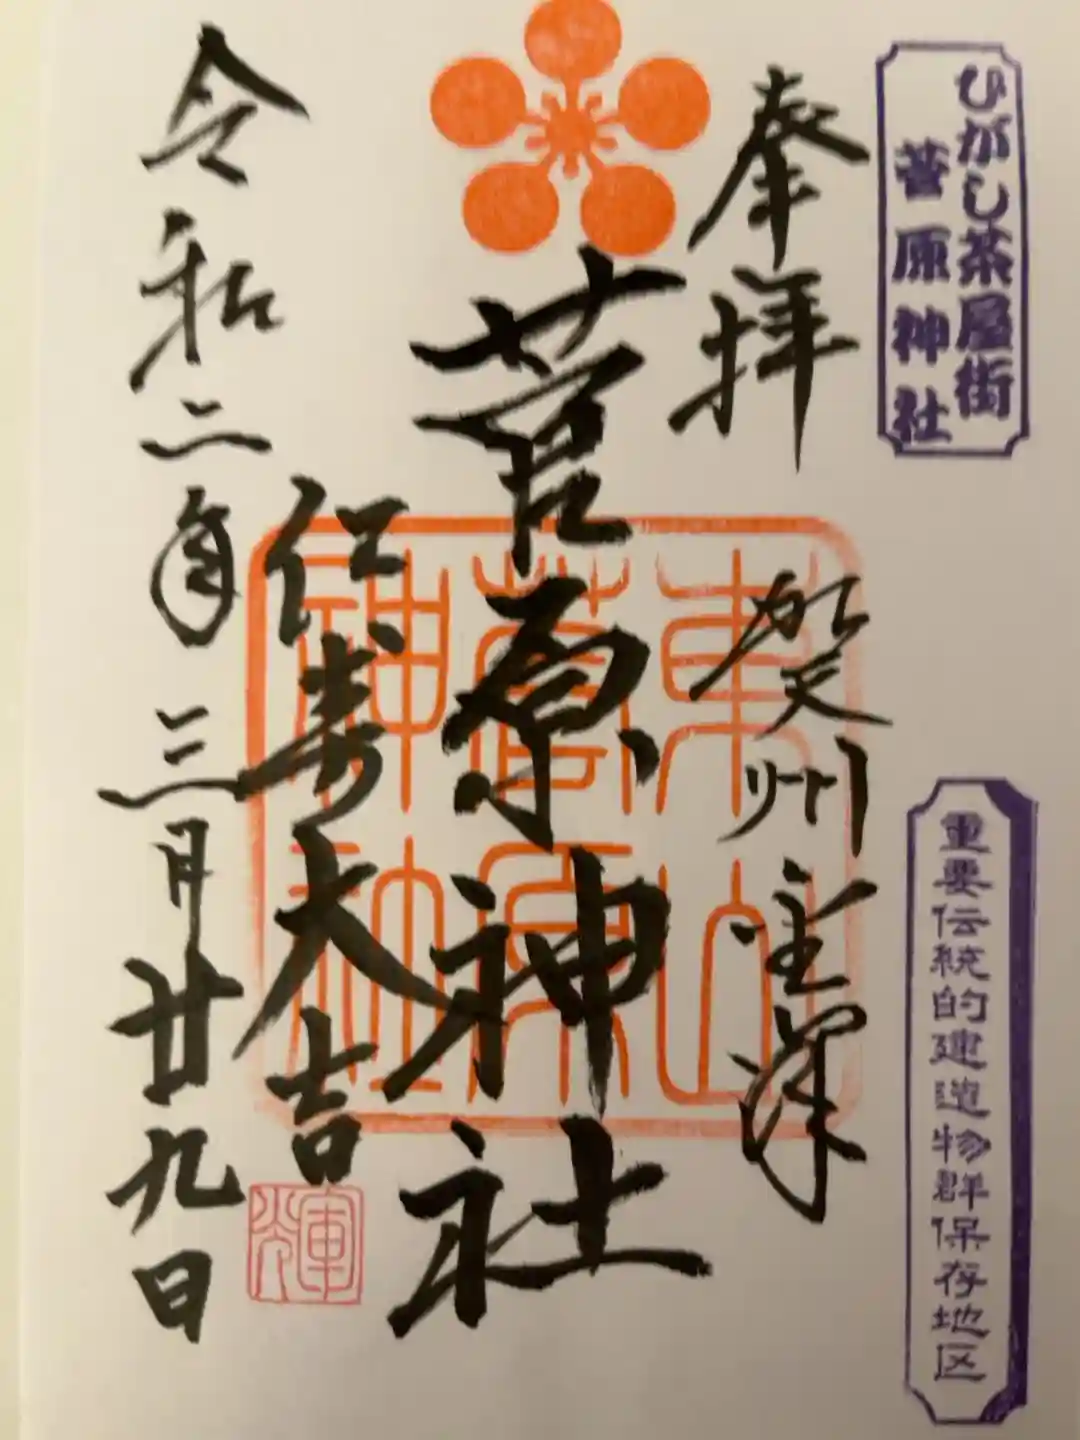 ひがし茶屋街
菅原神社
重要伝統的建造物群保存地区
奉拝
賀州金澤
菅原神社
仁寿大吉
令和二年三月廿九日
東山
菅原
神社
輝